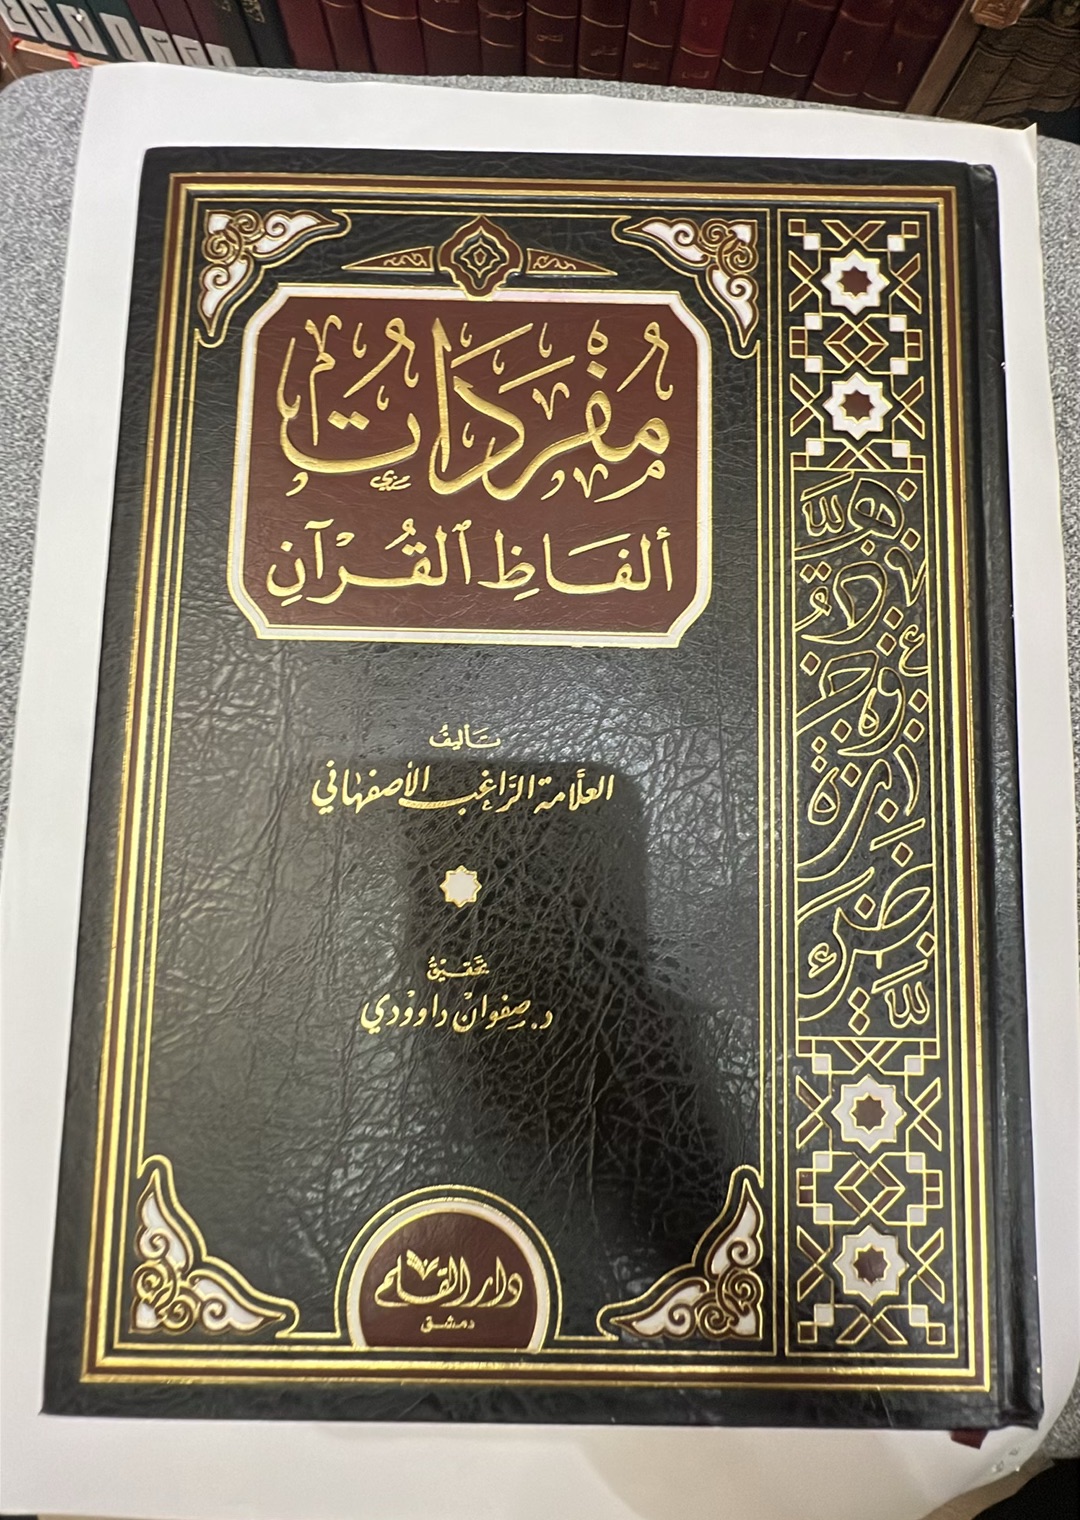 مُفْرَدَاتُ
ألفَاظِ ٱلقُرْآنِ
تَأليفُ
العلَّامة الرَّاغب الأصفهاني
تحقيقُ
د. صفوان داوودي
دار القلم
دمشق